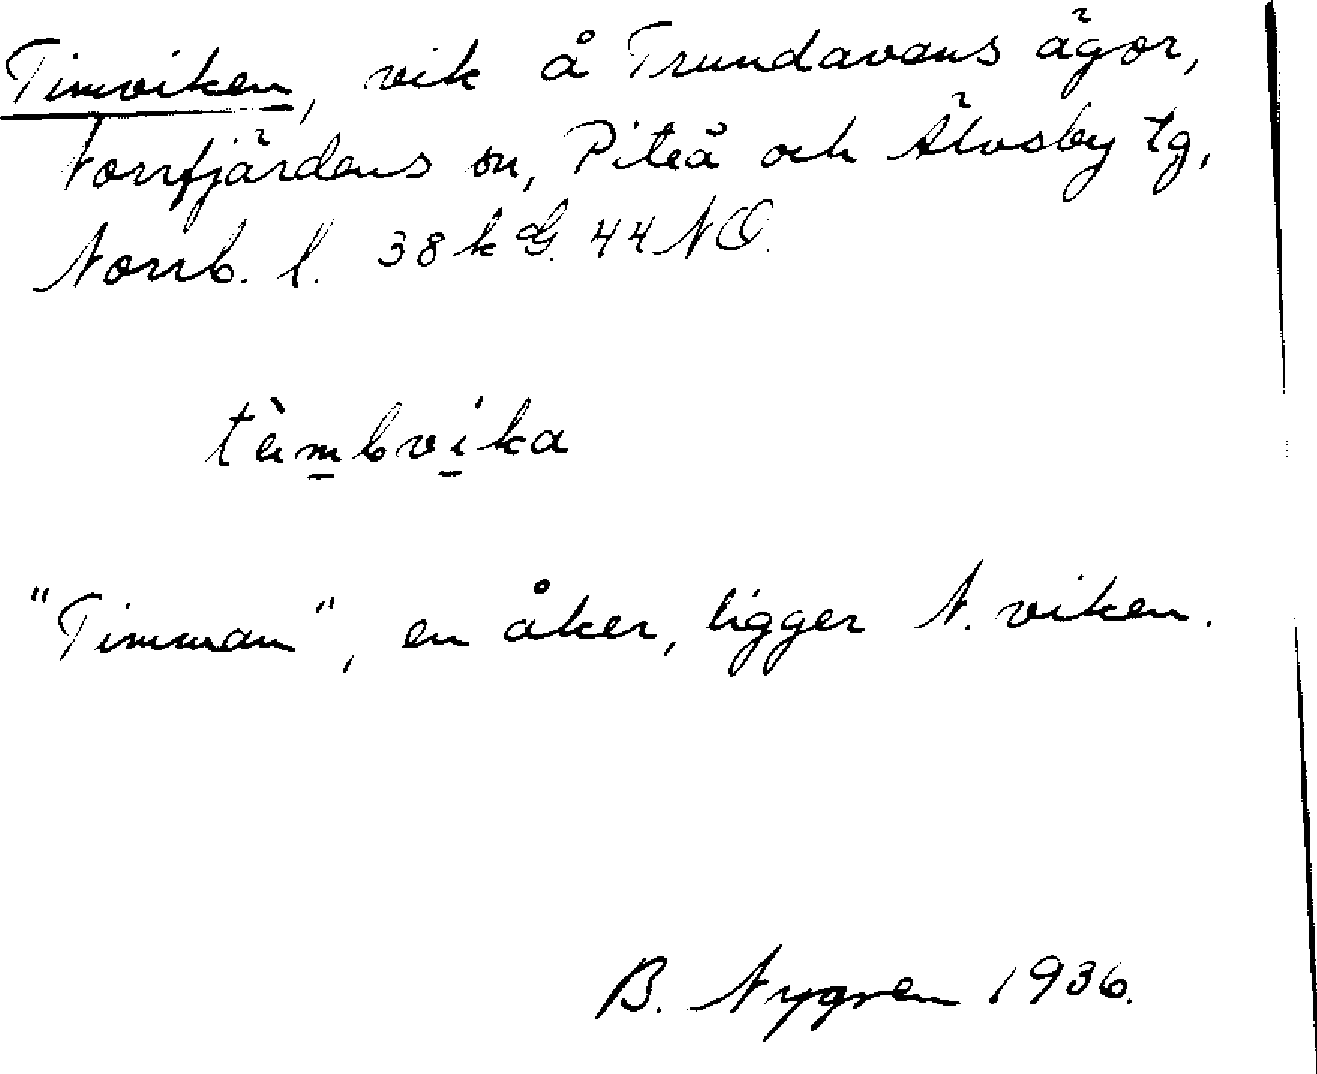 Timviken, vik å Trundavans ägor,
Norrfjärdens sn, Piteå och Älvsby tg,
Norrb. l. 38 k G. 44 NO.
tèmbvika
"Timman", en åker, ligger N. viken.
B. Nygren 1936.